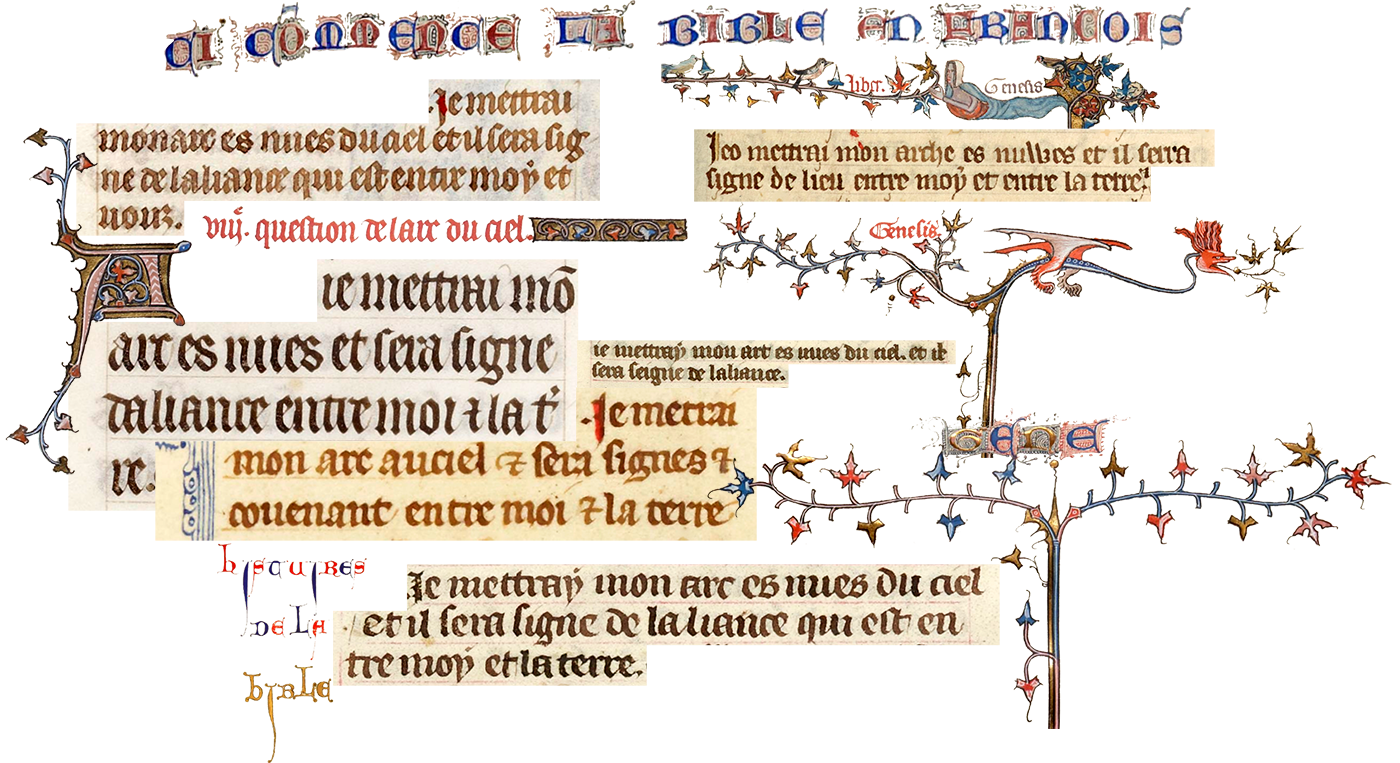 CI COMMENCE LA BIBLE EN FRANCOIS
liber. Genesis
Je mettrai
mon arc es nues du ciel et il sera sig
ne de laliance qui est entre moy et
vouz.
Jeo mettrai mon arche es nuwes et il serra
signe de lieu entre moy et entre la terre.
viij. question de larc du ciel.
Genesis
ie mettrai mō
arc es nues et sera signe
daliance entre moi ⁊ la t'
re.
ie mettray mon arc es nues du ciel. et il
sera seigne de laliance.
.Je metrai
mon arc au ciel ⁊ sera signes ⁊
couenant entre moi ⁊ la terre
GENE
histuires
de la
bible
Je mettray mon arc es nues du ciel
et il sera signe de la liance qui est en
tre moy et la terre.